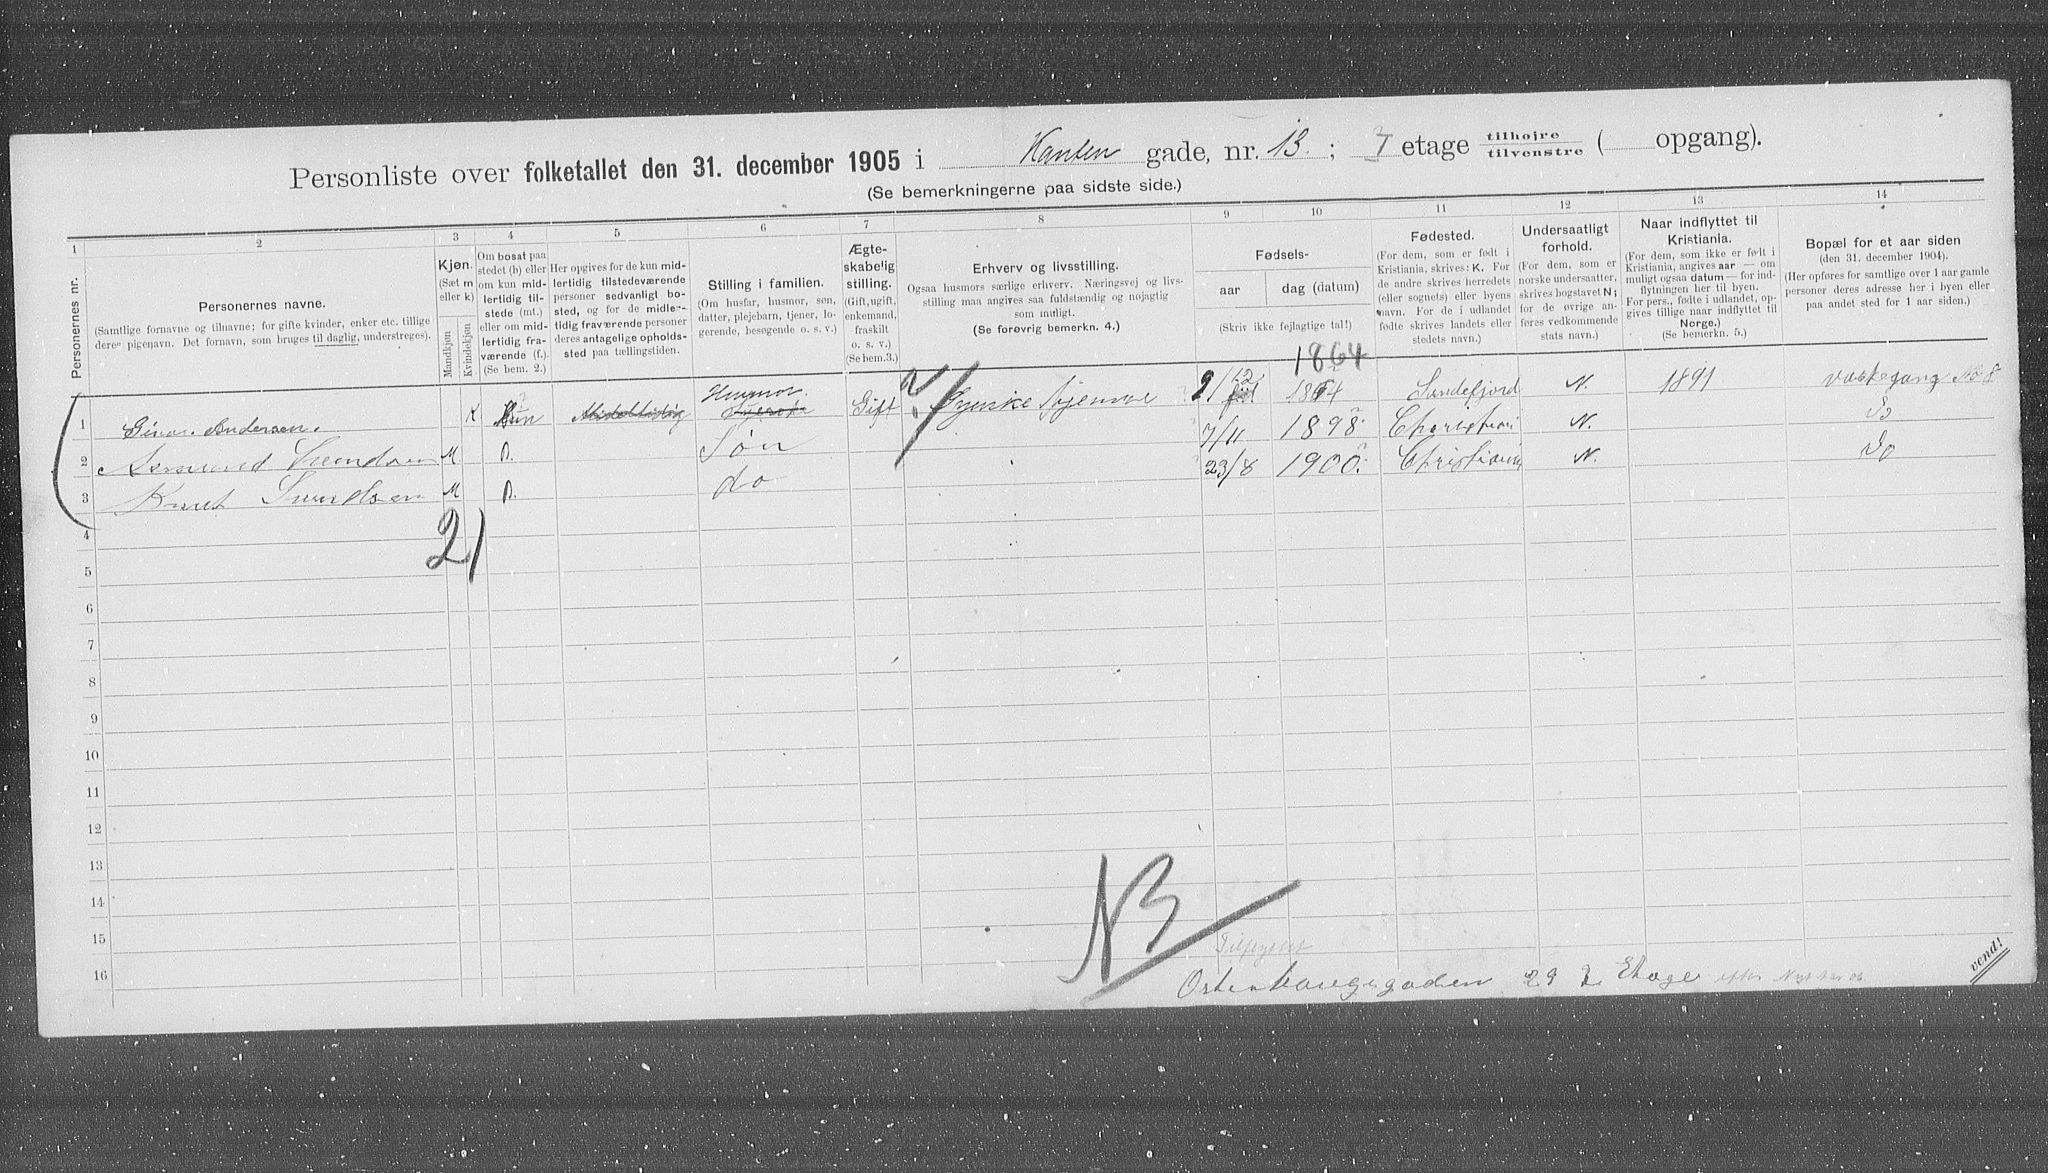 Personliste over folketallet den 31. december 1905 i Hausken gade, nr. 13. ; 3 etage tilhøjre/tilvenstre ( opgang).
(Se bemerkningerne paa sidste side.)
1 2 3 4 5 6 7 8 9 10 11 12 13 14
Personernes nr.
Personernes navne.
(Samtlige fornavne og tilnavne; for gifte kvinder, enker etc. tillige
deres pigenavn. Det fornavn, som bruges til daglig, understreges).
Kjøn.
(Sæt m
eller k)
Mandkjøn
Kvindekjøn
Om bosat paa
stedet (b) eller
om kun mid-
lertidig til-
stede (mt.)
eller om mid-
lertidig fra-
værende (f.)
(Se bem. 2.)
Her opgives for de kun mid-
lertidig tilstedeværende
personer sedvanlig bo-
sted, og for de midler-
tidig fraværende personer
deres antagelige opholds-
sted paa tællingstiden.
Stilling i familien.
(Om husfar, husmor, søn,
datter, plejebarn, tjener, lo-
gerende, besøgende o. s. v.)
Ægte-
skabelig
stilling.
(Gift, ugift,
enkemand,
fraskilt
o. s. v.)
(Se bem.3.)
Erhverv og livsstilling.
Ogsaa husmors særlige erhverv. Næringsvej og livs-
stilling maa angives saa fuldstændig og nøjagtig
som muligt.
(Se forøvrig bemerkn. 4.)
Fødsels-
aar
dag (datum)
(Skriv ikke fejlagtige tal!)
Fødested.
(For dem, som er født i
Kristiania, skrives: K. For
de andre skrives herredets
(eller sognets) eller byens
navn. For de i udlandet
fødte skrives landets eller
stedets navn.)
Undersaatligt
forhold.
(For dem, som er
norske undersaatter,
skrives bogstavet N;
for de øvrige an-
føres vedkommende
stats navn.)
Naar indflyttet til
Kristiania.
(For dem, som ikke er født i
Kristiania, angives aar — om
muligt ogsaa datum — for ind-
flytningen her til byen.
For pers., fødte i udlandet, op-
gives tillige naar indflyttet til
Norge.)
(Se bemerkn. 5.)
Bopæl for et aar siden
(den 31. december 1904).
(Her opføres for samtlige over 1 aar gamle
personer deres adresse her i byen eller
paa andet sted for 1 aar siden.)
1864
1 Andersen. K Husmor Gift 1864 Sandefjord N. 1891
2 M B. Søn 7/11 1898 N. Do
3 Knut M B. do 23/8 1900 Christiania N. Do
21
4
5
6
7
8
9
10
11
12
13
14
15
16
NB
29 Etage
vend!